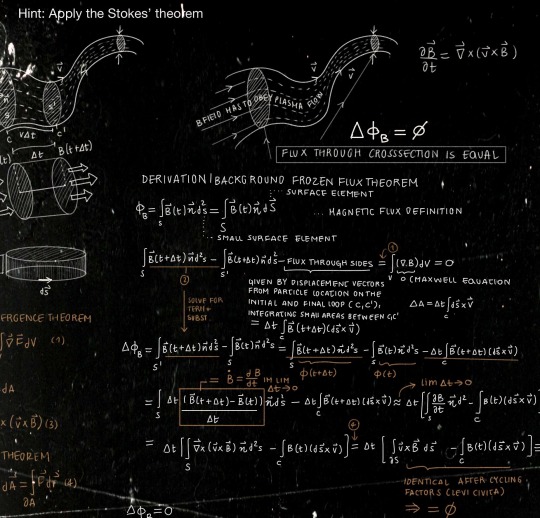 Hint: Apply the Stokes' theorem
∂B⃗/∂t = ∇⃗×(v⃗×B⃗)
v⃗
v⃗
B FIELD HAS TO OBEY PLASMA FLOW
ΔΦ_B = 0̸
FLUX THROUGH CROSSSECTION IS EQUAL
C vΔt C'
Δt B(t+Δt)
DERIVATION/BACKGROUND FROZEN FLUX THEOREM
SURFACE ELEMENT
Φ_B = ∫_S B⃗(t) n⃗ d²s = ∫_S B⃗(t) n⃗ dS⃗
... MAGNETIC FLUX DEFINITION
SMALL SURFACE ELEMENT
∫_S B⃗(t+Δt) n⃗ d²s − ∫_S' B⃗(t+Δt) n⃗ d²s − FLUX THROUGH SIDES = ∫_V (∇.B) dV = 0
①
0 (MAXWELL EQUATION
②
GIVEN BY DISPLACEMENT VECTORS
FROM PARTICLE LOCATION ON THE
INITIAL AND FINAL LOOP (C, C'),
INTEGRATING SMALL AREAS BETWEEN C,C'
ΔA = Δt ∫_C ds⃗×v⃗
= Δt ∫_C B⃗(t+Δt)(ds⃗×v⃗)
SOLVE FOR
TERM +
SUBST.
dS⃗
ERGENCE THEOREM
∫∇⃗F⃗dV (1)
ΔΦ_B = ∫_S' B⃗(t+Δt) n⃗ d²s − ∫_S B⃗(t) n⃗ d²s = ∫_S B⃗(t+Δt) n⃗ d²s − ∫_S B⃗(t) n⃗ d²s − Δt ∫_C B⃗(t+Δt)(ds⃗×v⃗)
Φ(t+Δt) Φ(t)
= Ḃ = dB⃗/dt IM LIM Δt→0
lim Δt→0
dA
= ∫_S Δt (B⃗(t+Δt) − B⃗(t))/Δt n⃗ d²s − Δt ∫_C B⃗(t+Δt)(ds⃗×v⃗) ≈ Δt [∬_S ∂B⃗/∂t n⃗ d² − ∫_C B(t)(ds⃗×v⃗)]
× (v⃗×B⃗) (3)
= Δt [∬_S ∇×(v⃗×B⃗) n⃗ d²s − ∫_C B(t)(ds⃗×v⃗)] = Δt [∫_∂S v⃗×B⃗ ds⃗ − ∫_C B(t)(ds⃗×v⃗)] =
④
THEOREM
dA⃗ = ∫_∂A F⃗ dr⃗ (4)
IDENTICAL AFTER CYCLING
FACTORS (LEVI CIVITA)
⇒ = 0̸
ΔΦ_B = 0